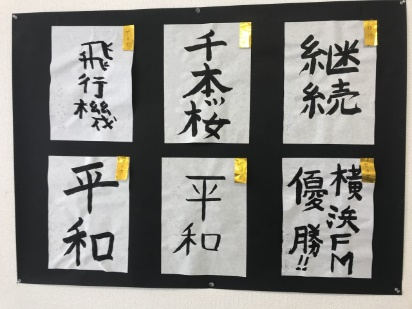 飛行機
千本桜
継続
平和
平和
横浜FM
優勝!!